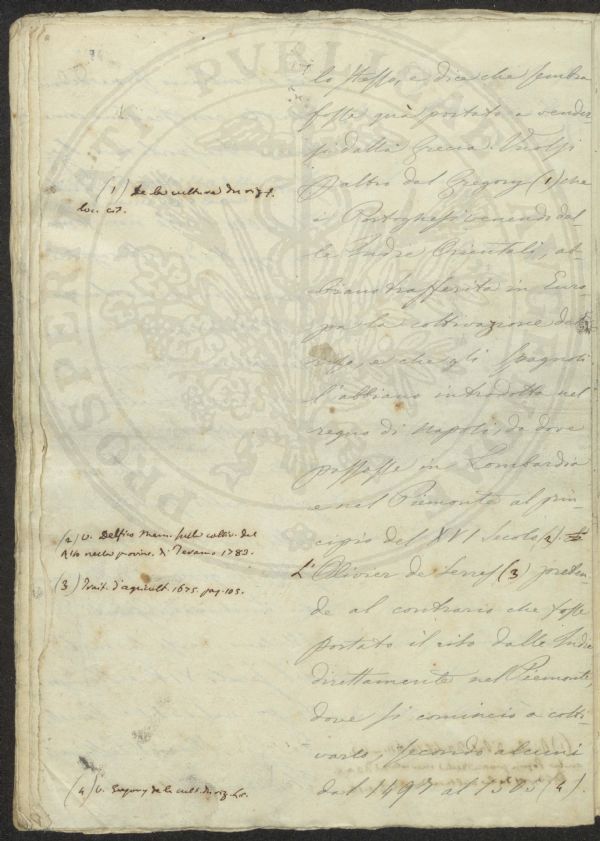 lo stesso, e dice che sembra
fosse quà portato a vender
si dalla Grecia. Vuolsi
(1) De la culture du riz l.
loc. cit.
d'altro dal Gregory (1) che
i Portoghesi venendo dal
le Indie Orientali, ab-
biano trasferita in Euro
pa la coltivazione del
riso, e che gli Spagnoli
l'abbiano introdotta nel
regno di Napoli, da dove
passasse in Lombardia
e nel Piemonte al prin
cipio del XVI Secolo (2).
(2) V. Delfico Mem. sulla coltiv. del
Riso nella provinc. di Teramo 1783.
L'Olivier de Serres (3) preten
(3) Trait. d'agricult. 1675. pag. 105.
de al contrario che fosse
portato il riso dalle Indie
direttamente nel Piemonte,
dove si cominciò a colti
varlo, secondo alcuni
dal 1497 al 1505 (4).
(4) V. Gregory de la cult. du riz
PROSPERITATI PVBLICAE